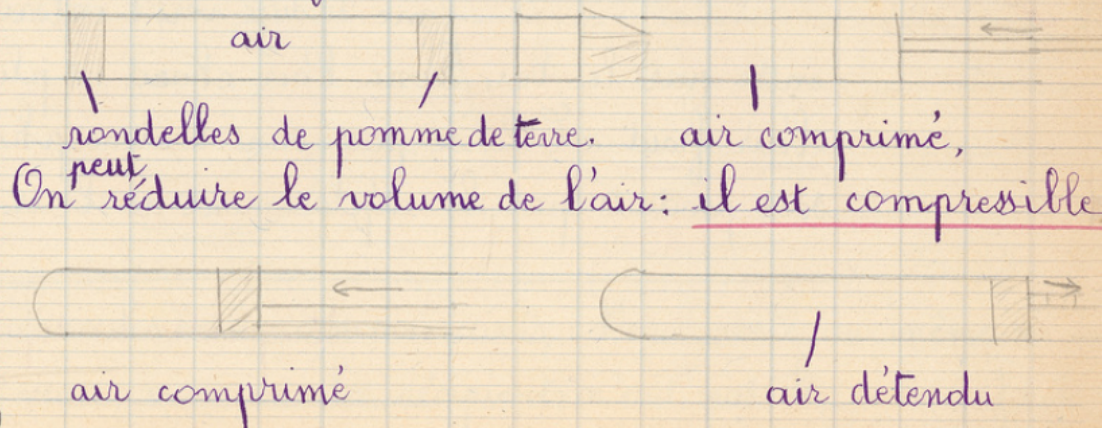 air
rondelles de pomme de terre. air comprimé,
peut
On réduire le volume de l'air: il est compressible
air comprimé air détendu